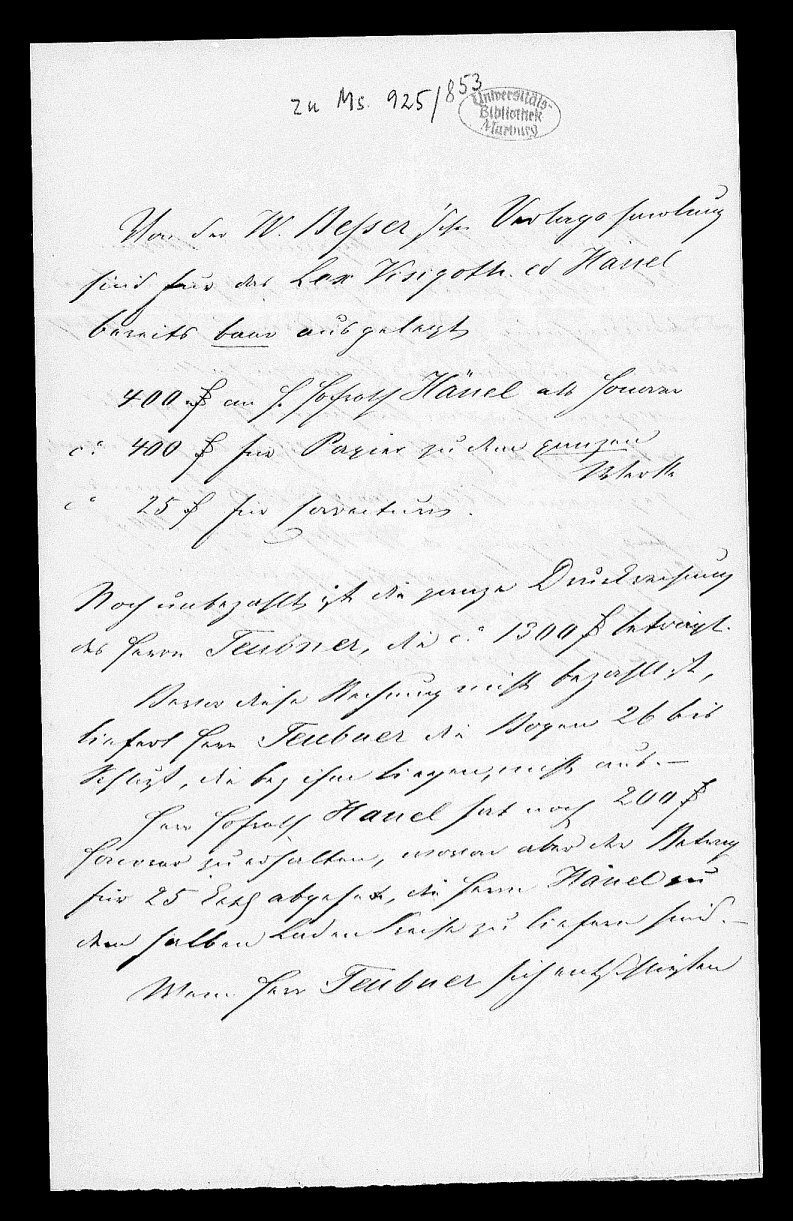 zu Ms. 925/853
Universitäts-
Bibliothek
Marburg
Von der W. Besser'schen Verlagshandlung
sind für das Lex Visigoth. ed Hänel
bereits baar ausgelegt
400 ₰ an H. Hofrath Hänel als Honorar
ca 400 ₰ für Papier zu dem ganzen
Werke
ca 25 ₰ für Correcturen.
Noch unbezahlt ist die ganze Druckrechnung
des Herrn Teubner, die ca 1300 ₰ beträgt.
Bevor diese Rechnung nicht bezahlt ist,
liefert Herr Teubner die Bogen 26 bis
Schluß, die bey ihm liegen, nicht aus. —
Herr Hofrath Hänel hat noch 200 ₰
Honorar zu erhalten, wovon aber der Betrag
für 25 Expl abgeht, die Herrn Hänel zu
dem halben Laden Preise zu liefern sind. —
Wenn Herr Teubner sich entschließen